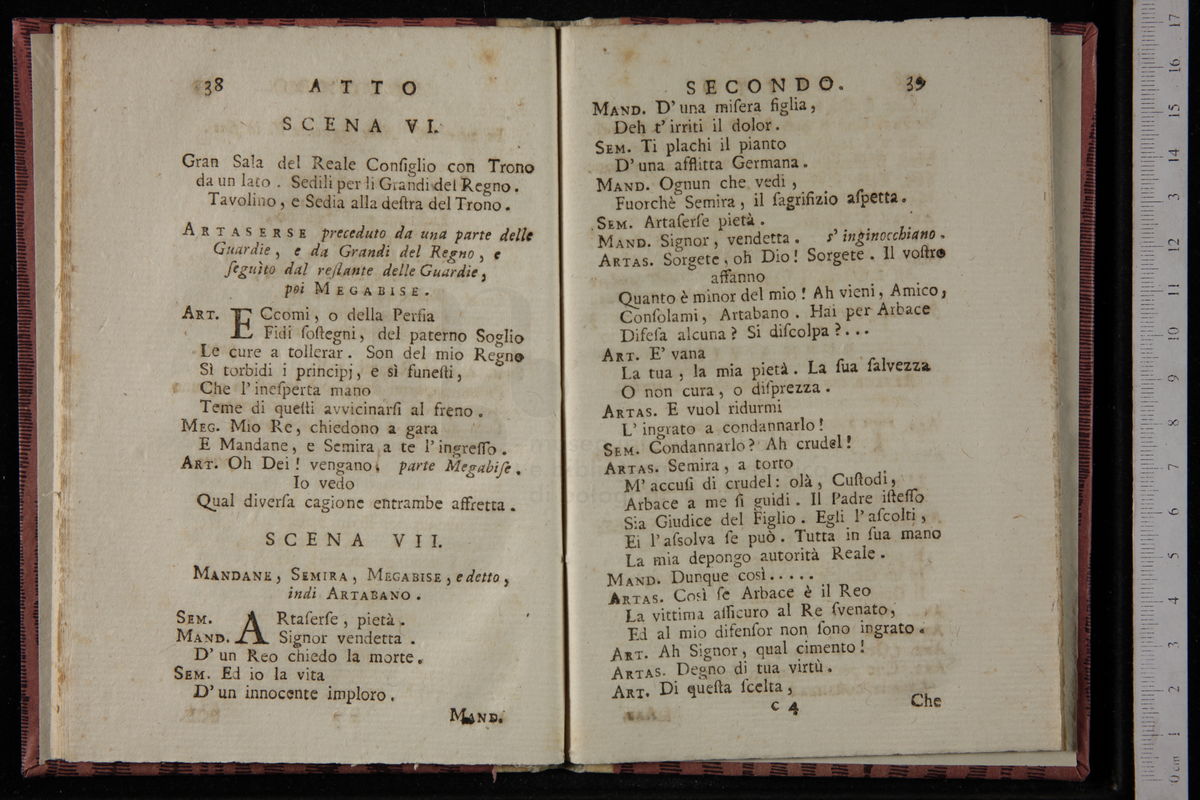 38 ATTO
SCENA VI.
Gran Sala del Reale Conſiglio con Trono
da un lato . Sedili per li Grandi del Regno .
Tavolino , e Sedia alla deſtra del Trono .
ARTASERSE preceduto da una parte delle
Guardie , e da Grandi del Regno , e
ſeguito dal reſtante delle Guardie ,
poi MEGABISE .
ART. ECcomi , o della Perſia
Fidi ſoſtegni , del paterno Soglio
Le cure a tollerar . Son del mio Regno
Sì torbidi i principj , e sì funeſti ,
Che l' ineſperta mano
Teme di queſti avvicinarſi al freno .
MEG. Mio Re , chiedono a gara
E Mandane , e Semira a te l' ingreſſo .
ART. Oh Dei ! vengano . parte Megabiſe .
Io vedo
Qual diverſa cagione entrambe affretta .
SCENA VII.
MANDANE , SEMIRA , MEGABISE , e detto ,
indi ARTABANO .
SEM. ARtaſerſe , pietà .
MAND. Signor vendetta .
D' un Reo chiedo la morte .
SEM. Ed io la vita
D' un innocente imploro .
MAND.
SECONDO. 39
MAND. D' una miſera figlia ,
Deh t' irriti il dolor .
SEM. Ti plachi il pianto
D' una afflitta Germana .
MAND. Ognun che vedi ,
Fuorchè Semira , il ſagrifizio aſpetta .
SEM. Artaſerſe pietà .
MAND. Signor , vendetta . s' inginocchiano .
ARTAS. Sorgete , oh Dio ! Sorgete . Il voſtro
affanno
Quanto è minor del mio ! Ah vieni , Amico ,
Conſolami , Artabano . Hai per Arbace
Difeſa alcuna ? Si diſcolpa ? . . .
ART. E' vana
La tua , la mia pietà . La ſua ſalvezza
O non cura , o diſprezza .
ARTAS. E vuol ridurmi
L' ingrato a condannarlo !
SEM. Condannarlo ? Ah crudel !
ARTAS. Semira , a torto
M' accuſi di crudel : olà , Cuſtodi ,
Arbace a me ſi guidi . Il Padre iſteſſo
Sia Giudice del Figlio . Egli l' aſcolti ,
Ei l' aſsolva ſe può . Tutta in ſua mano
La mia depongo autorità Reale .
MAND. Dunque così . . . . .
ARTAS. Così ſe Arbace è il Reo
La vittima aſſicuro al Re ſvenato ,
Ed al mio difenſor non ſono ingrato .
ART. Ah Signor , qual cimento !
ARTAS. Degno di tua virtù .
ART. Di queſta ſcelta ,
C 4 Che